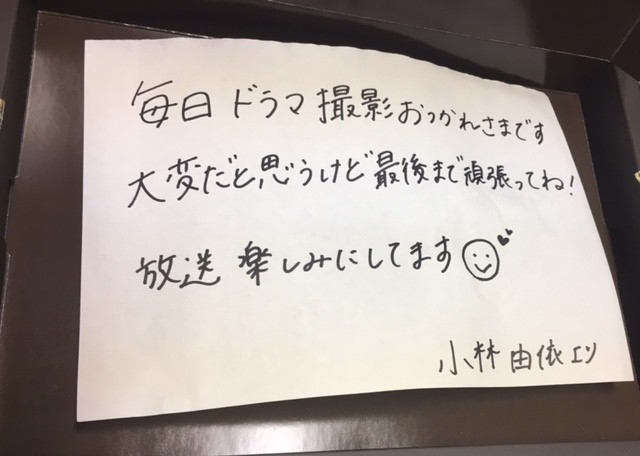 毎日ドラマ撮影おつかれさまです
大変だと思うけど最後まで頑張ってね!
放送楽しみにしてます
小林由依